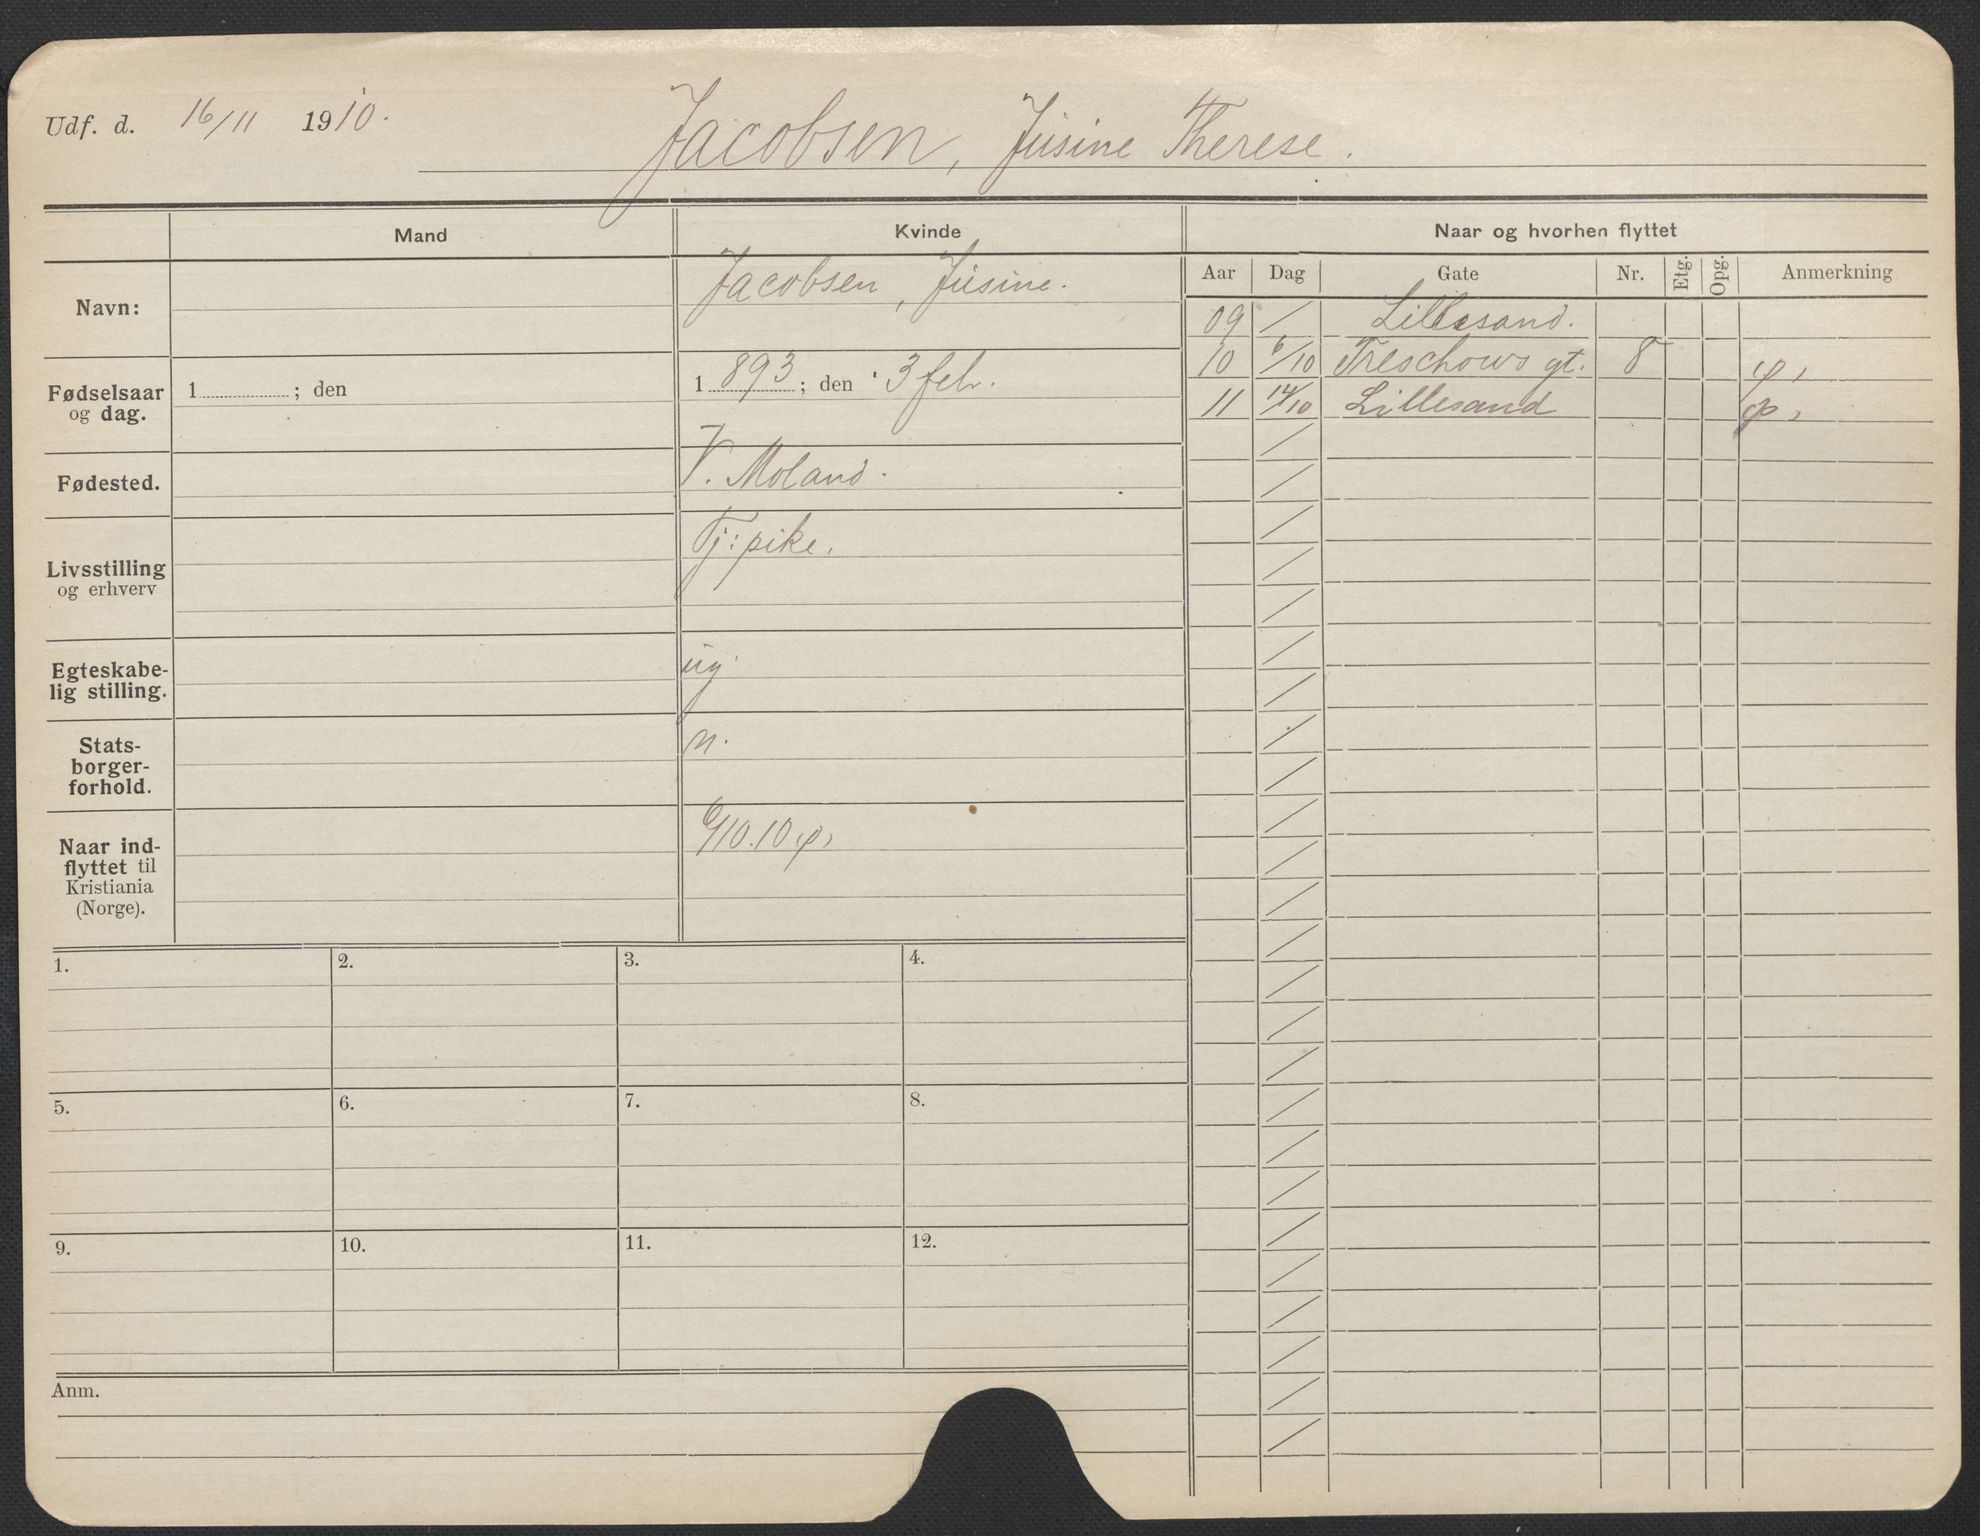 Udf. d. 16/11 1910. Jacobsen, Jusine Therese.
Mand Kvinde Naar og hvorhen flyttet
Aar Dag Gate Nr. Etg. Opg. Anmerkning
Navn: Jacobsen, Jusine.
09 / Lillesand.
10 6/10 Treschows gt. 8
11 14/10 Lillesand
Fødselsaar og dag. 1 ; den 1893 ; den 3 feb.
Fødested. V. Moland.
Livsstilling og erhverv Tj: pike.
Egteskabe-
lig stilling. ug.
Stats-
borger-
forhold. n.
Naar ind-
flyttet til
Kristiania
(Norge). 6/10.10
1. 2. 3. 4.
5. 6. 7. 8.
9. 10. 11. 12.
Anm.